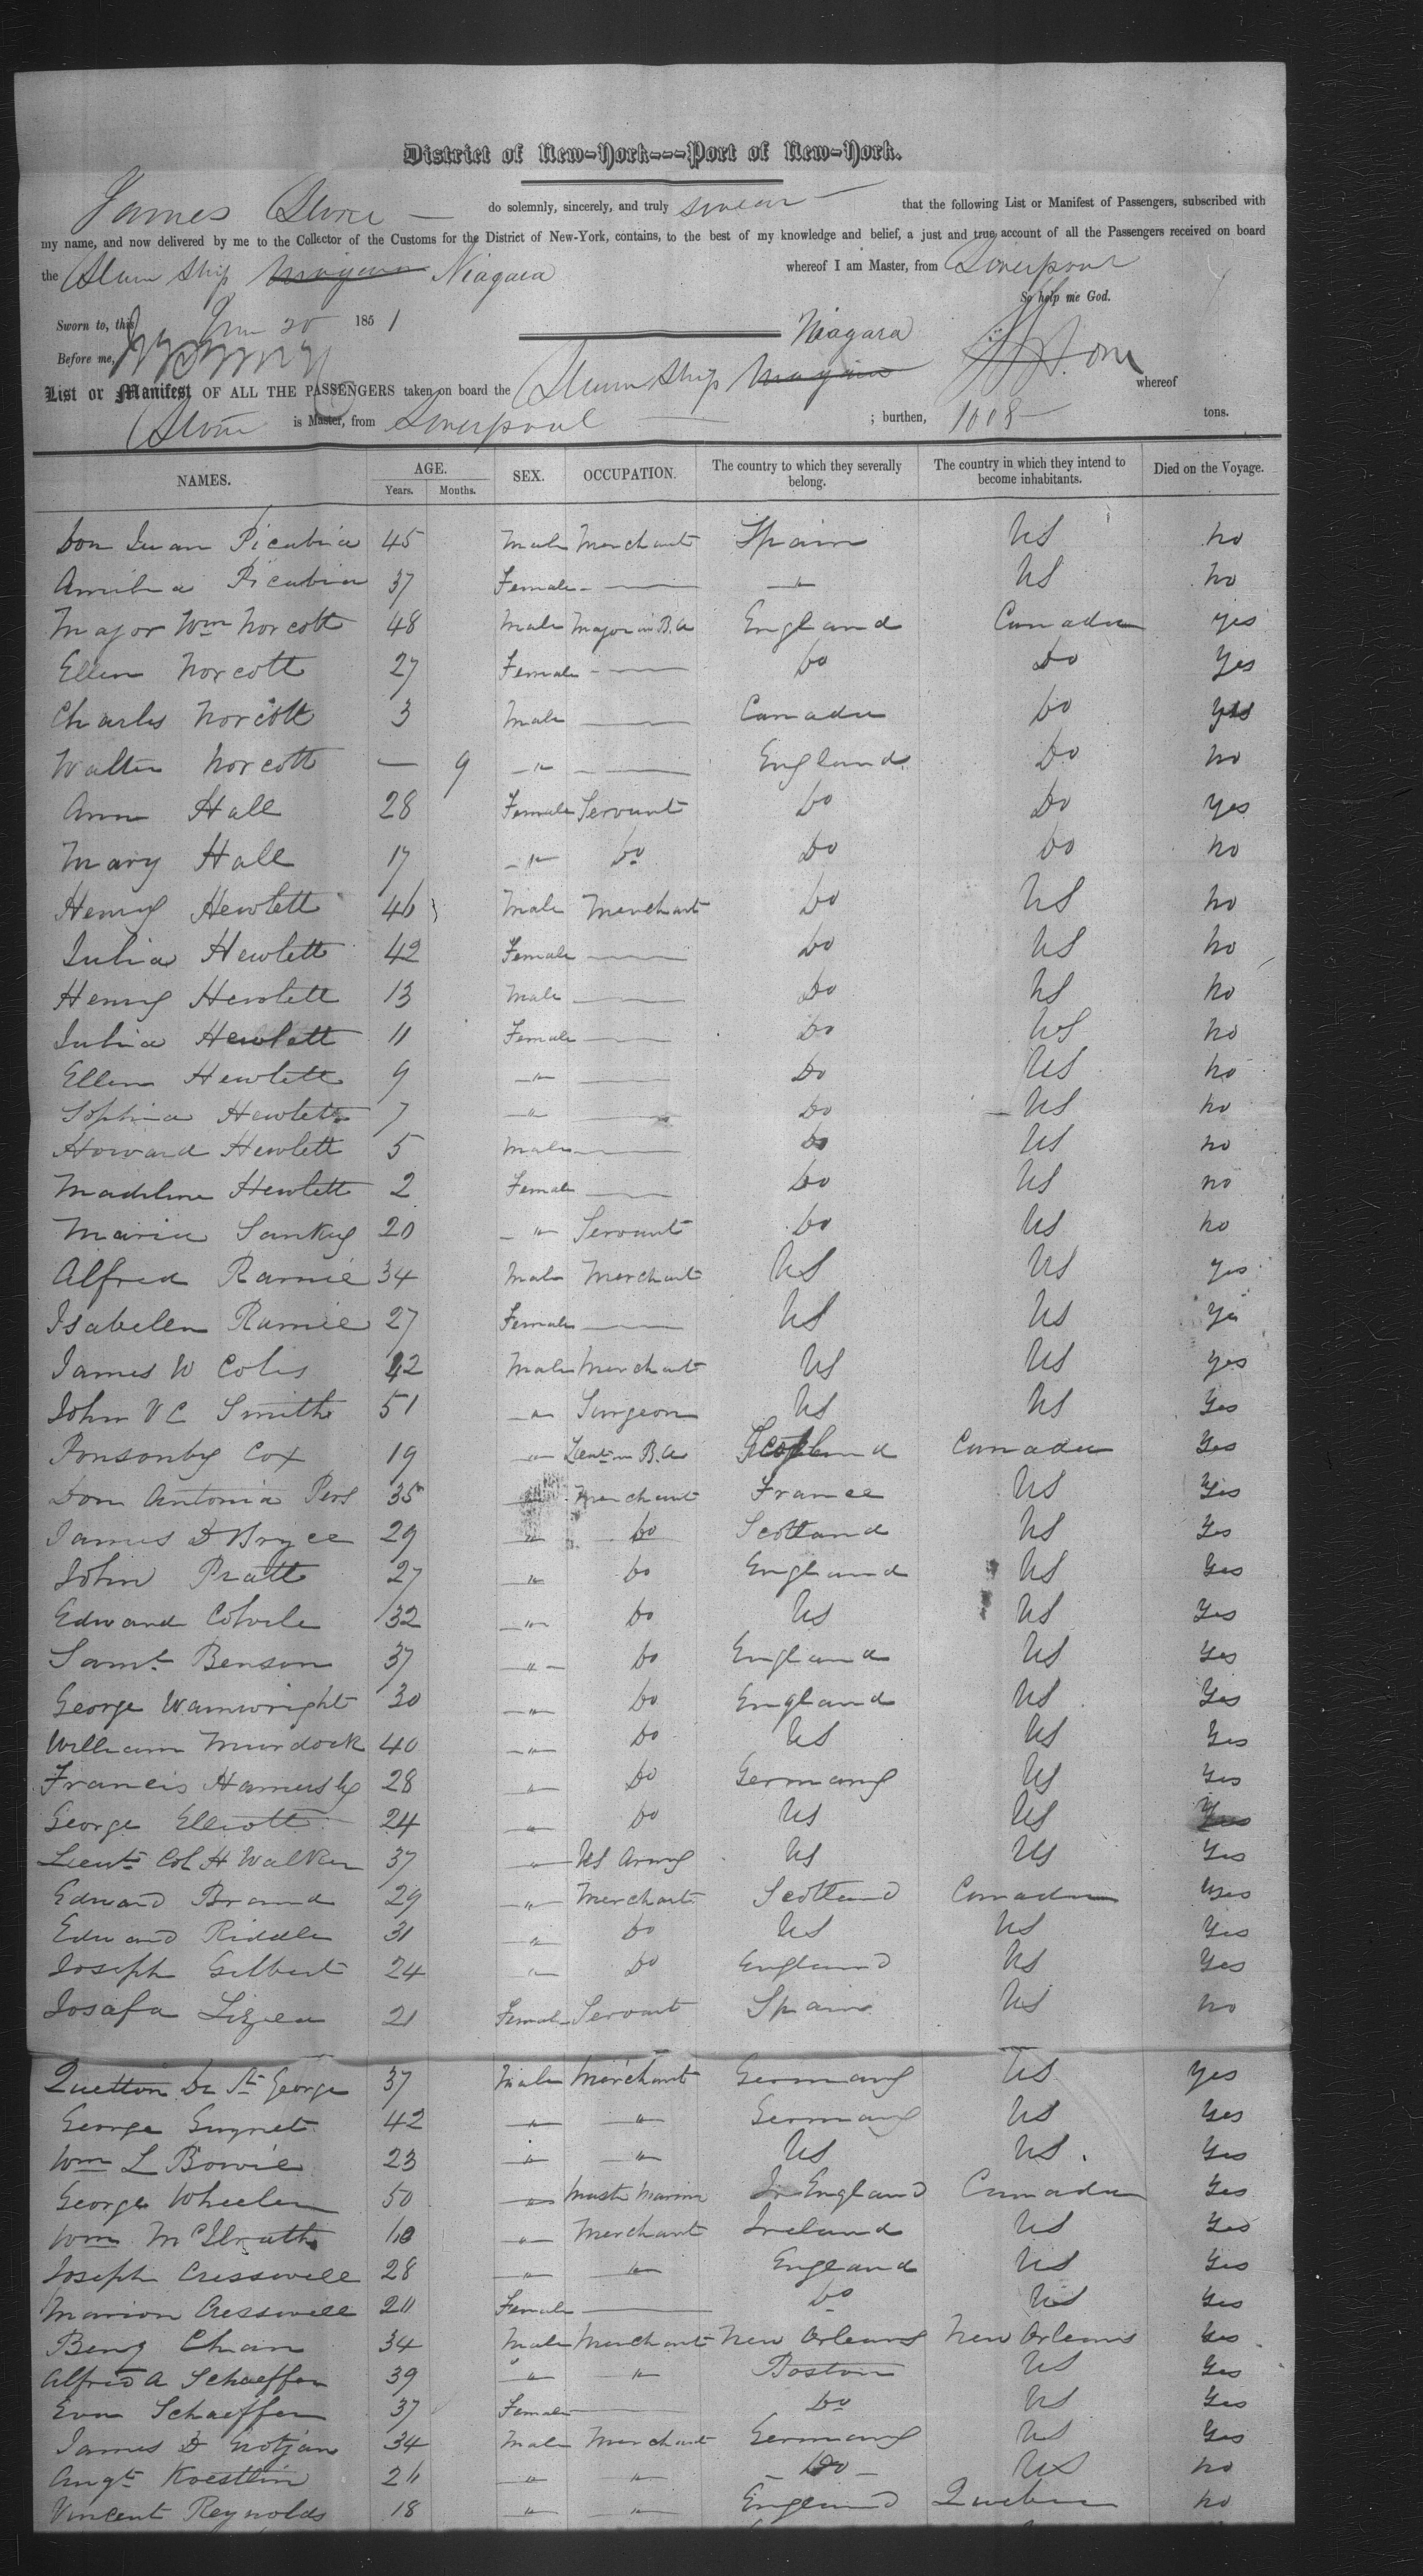 District of New-York---Port of New-York.
James Stone — do solemnly, sincerely, and truly swear that the following List or Manifest of Passengers, subscribed with
my name, and now delivered by me to the Collector of the Customs for the District of New-York, contains, to the best of my knowledge and belief, a just and true account of all the Passengers received on board
the Steam Ship Niagara whereof I am Master, from Liverpool
So help me God.
Sworn to, this June 20 1851
Before me,
Niagara
List or Manifest OF ALL THE PASSENGERS taken on board the Steam Ship whereof
Stone is Master, from Liverpool ; burthen, 1008 tons.
NAMES. AGE. SEX. OCCUPATION. The country to which they severally belong. The country in which they intend to become inhabitants. Died on the Voyage.
Years. Months.
Don Juan Picabia 45 Male Merchant Spain US no
Picabia 37 Female — " US no
Major Wm Norcott 48 Male Major in B.A England Canada yes
Ellen Norcott 27 Female — Do Do Yes
Charles Norcott 3 Male — Canada Do Yes
Walter Norcott — 9 " — England Do no
Ann Hall 28 Female Servant Do Do Yes
Mary Hall 17 " Do Do Do no
Henry Hewlett 46 Male Merchant Do US no
Julia Hewlett 42 Female — Do US no
Henry Hewlett 13 Male — Do US no
Julia Hewlett 11 Female — Do US no
Ellen Hewlett 9 " — Do US no
Sophia Hewlett 7 " — Do US no
Howard Hewlett 5 Male — Do US no
Madeline Hewlett 2 Female — Do US no
Maria Sankey 20 " Servant Do US no
Alfred Ramie 34 Male Merchant US US yes
Isabelen Ramie 27 Female — US US Yes
James W Coles 42 Male Merchant US US yes
John V C Smith 51 " Surgeon US US Yes
Ponsonby Cox 19 " Lieut in B.A Canada Yes
Don Antonia 35 " Merchant France US Yes
James D Bryce 29 " Do Scotland US Yes
John Pratt 27 " Do England US Yes
Edward Colvile 32 " Do US US Yes
Saml Benson 37 " Do England US Yes
George Wainwright 30 " Do England US Yes
William Murdock 40 " Do US US Yes
Francis Hamersly 28 " Do Germany US Yes
George Elliott 24 " Do US US Yes
Lieut Col H Walker 37 " US Army US US Yes
Edward Brand 29 " Merchant Scotland Canada Yes
Edward Riddle 31 " Do US US Yes
Joseph Gilbert 24 " Do England US Yes
Josafa 21 Female Servant Spain US no
Quetton De St George 37 Male Merchant Germany US yes
George Guynet 42 " " Germany US Yes
Wm L Bowie 23 " " US US Yes
George Wheeler 50 " England Canada Yes
Wm McIlrath " Merchant Ireland US Yes
Joseph Cresswell 28 " " England US Yes
Marion Cresswell Female — Do US Yes
Benj 34 Male Merchant New Orleans New Orleans Yes
Alfred A Schaeffer 39 " " Boston US Yes
Eva Schaeffer 37 Female — Do US Yes
James D Grotjan 34 Male Merchant Germany US Yes
Augt Koestlin " " Do US no
Vincent Reynolds 18 " " England Quebec no